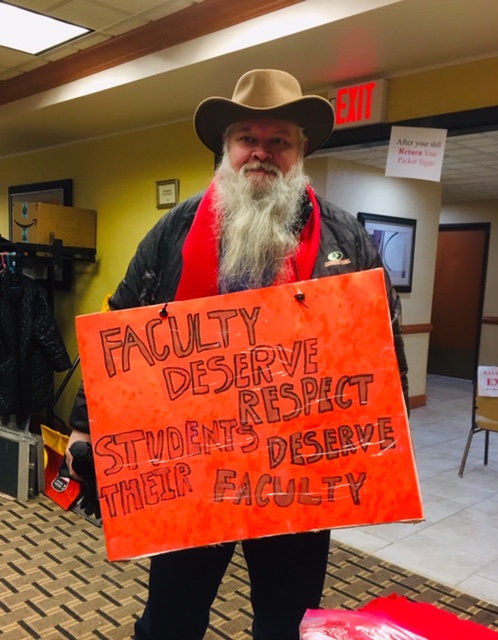 EXIT
After your shift
Return Your
Picket Signs!
FACULTY
DESERVE
RESPECT
STUDENTS DESERVE
THEIR FACULTY